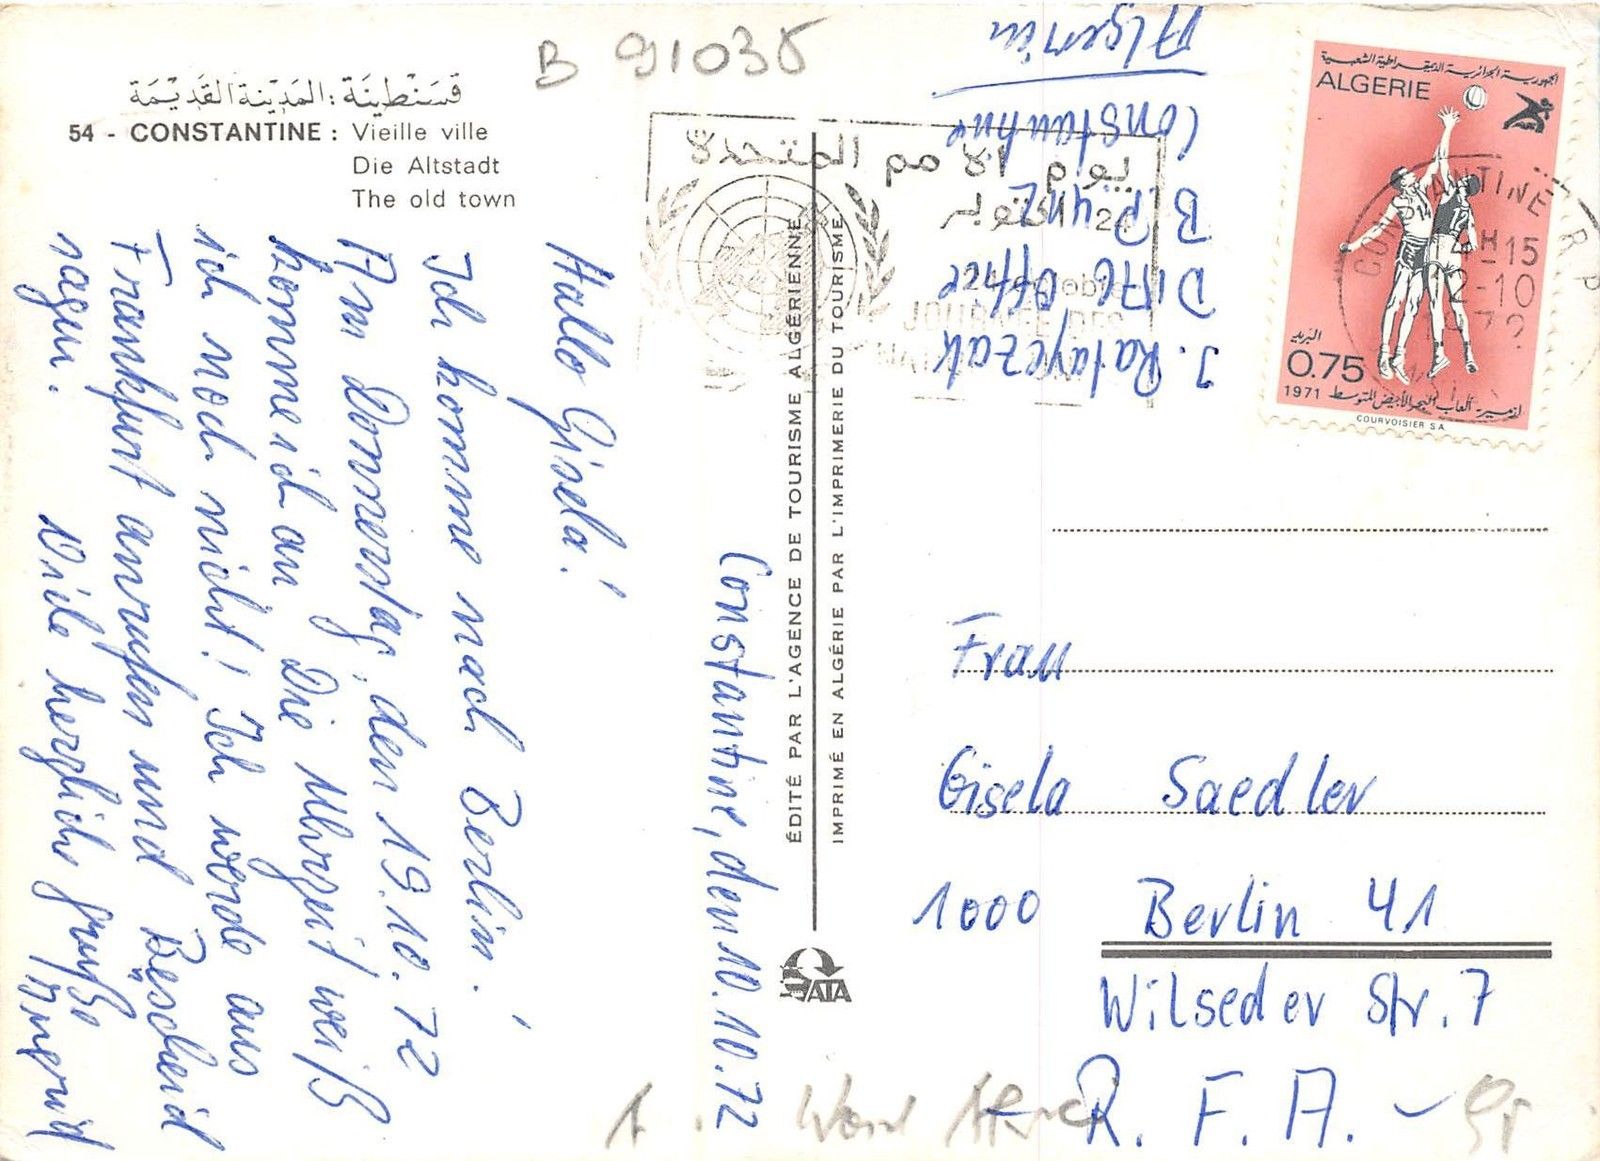 B 91035
قسنطينة : المدينة القديمة
54 - CONSTANTINE : Vieille ville
Die Altstadt
The old town
Hallo Gisela!
Ich komme nach Berlin.
Am Donnerstag, den 19.10.72
komme ich an. Die Uhrzeit weiß
ich noch nicht! Ich werde aus
Frankfurt anrufen und Bescheid
sagen.
Viele herzliche Grüße
Constantine, den 10.10.72
ÉDITÉ PAR L'AGENCE DE TOURISME ALGÉRIENNE
IMPRIMÉ EN ALGÉRIE PAR L'IMPRIMERIE DU TOURISME
ATA
J. Ratayczak
Office
B.P.
Constantine
Algerien
يوم الأمم المتحدة
24 اكتوبر
JOURNEE DES
الجمهورية الجزائرية الديمقراطية الشعبية
ALGERIE
البريد
0.75
1971
COURVOISIER S.A.
CONSTANTINE R.P
15
12-10
1972
Frau
Gisela Saedler
1000 Berlin 41
Wilseder Str. 7
R. F. A. -